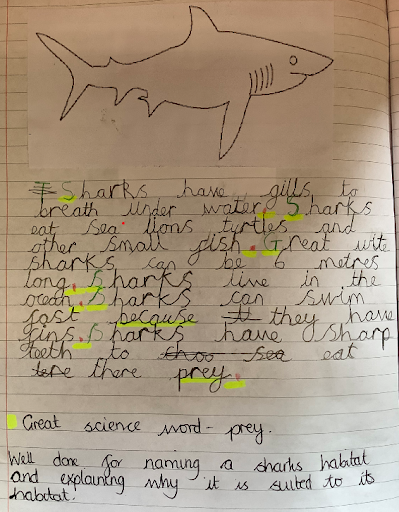 Sharks have gills to
breath under water. Sharks
eat sea lions turtles and
other small fish. Great wite
sharks can be 6 metres
long. Sharks live in the
ocean. Sharks can swim
fast because they have
fins. Sharks have sharp
teeth to eat
there prey.
Great science word - prey.
Well done for naming a sharks habitat
and explaining why it is suited to its
habitat.